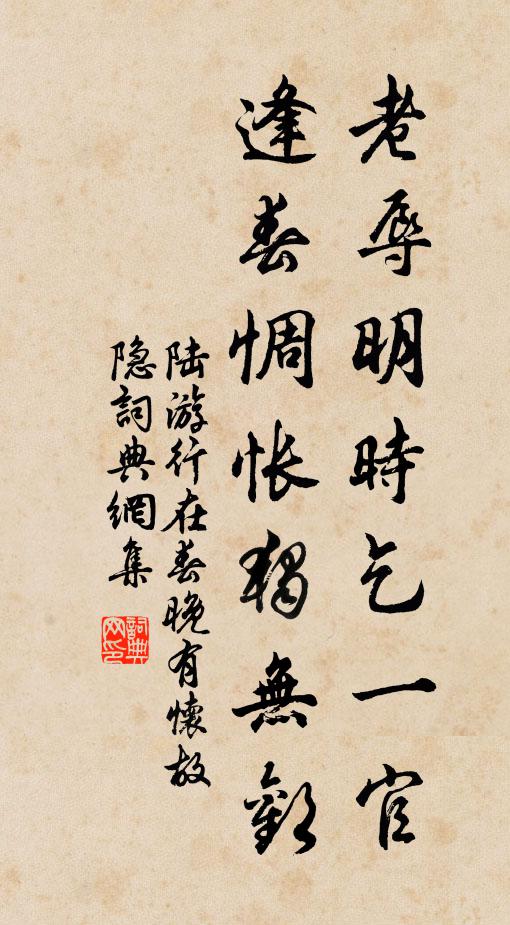 老辱明時乞一官
逢春惆悵獨無歡
陆游行在春晚有懷故
隐詞典網集
詞典網印